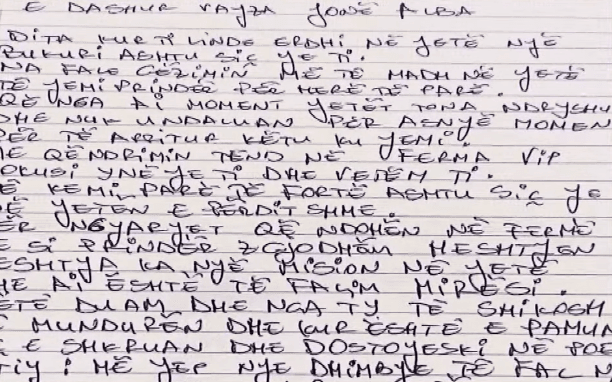 E DASHUR VAJZA JONË ALBA
DITA KUR TI LINDE ERDHI NË JETË NJË
BUKURI ASHTU SIÇ JE TI.
NA FALE GËZIMIN MË TË MADH NË JETË
TË JEMI PRINDËR PËR HERË TË PARË.
QË NGA AI MOMENT JETËT TONA NDRYSHU
DHE NUK U NDALUAN PËR ASNJË MOMEN
PËR TË ARRITUR KËTU KU JEMI.
ME QËNDRIMIN TËND NË FERMA VIP
OKUSI YNË JE TI DHE VETËM TI.
E KEMI PARË TË FORTË ASHTU SIÇ JE
NË JETËN E PËRDITSHME.
ËR NGJARJET QË NDOHËN NË FERMË
E SI PRINDËR ZGJODHËM HESHTJEN
ESHTJA KA NJË MISION NË JETË
HE AI ËSHTË TË FALIM MIRËSI.
ETË DUAM DHE NGA TY TË SHIKOSH
MUNDURËN DHE KUR ËSHTË E PAMUN
E SHKRUAN DHE DOSTOYESKI NË POE
TIJ: MË JEP NJE DHIMBJE TË FAL N